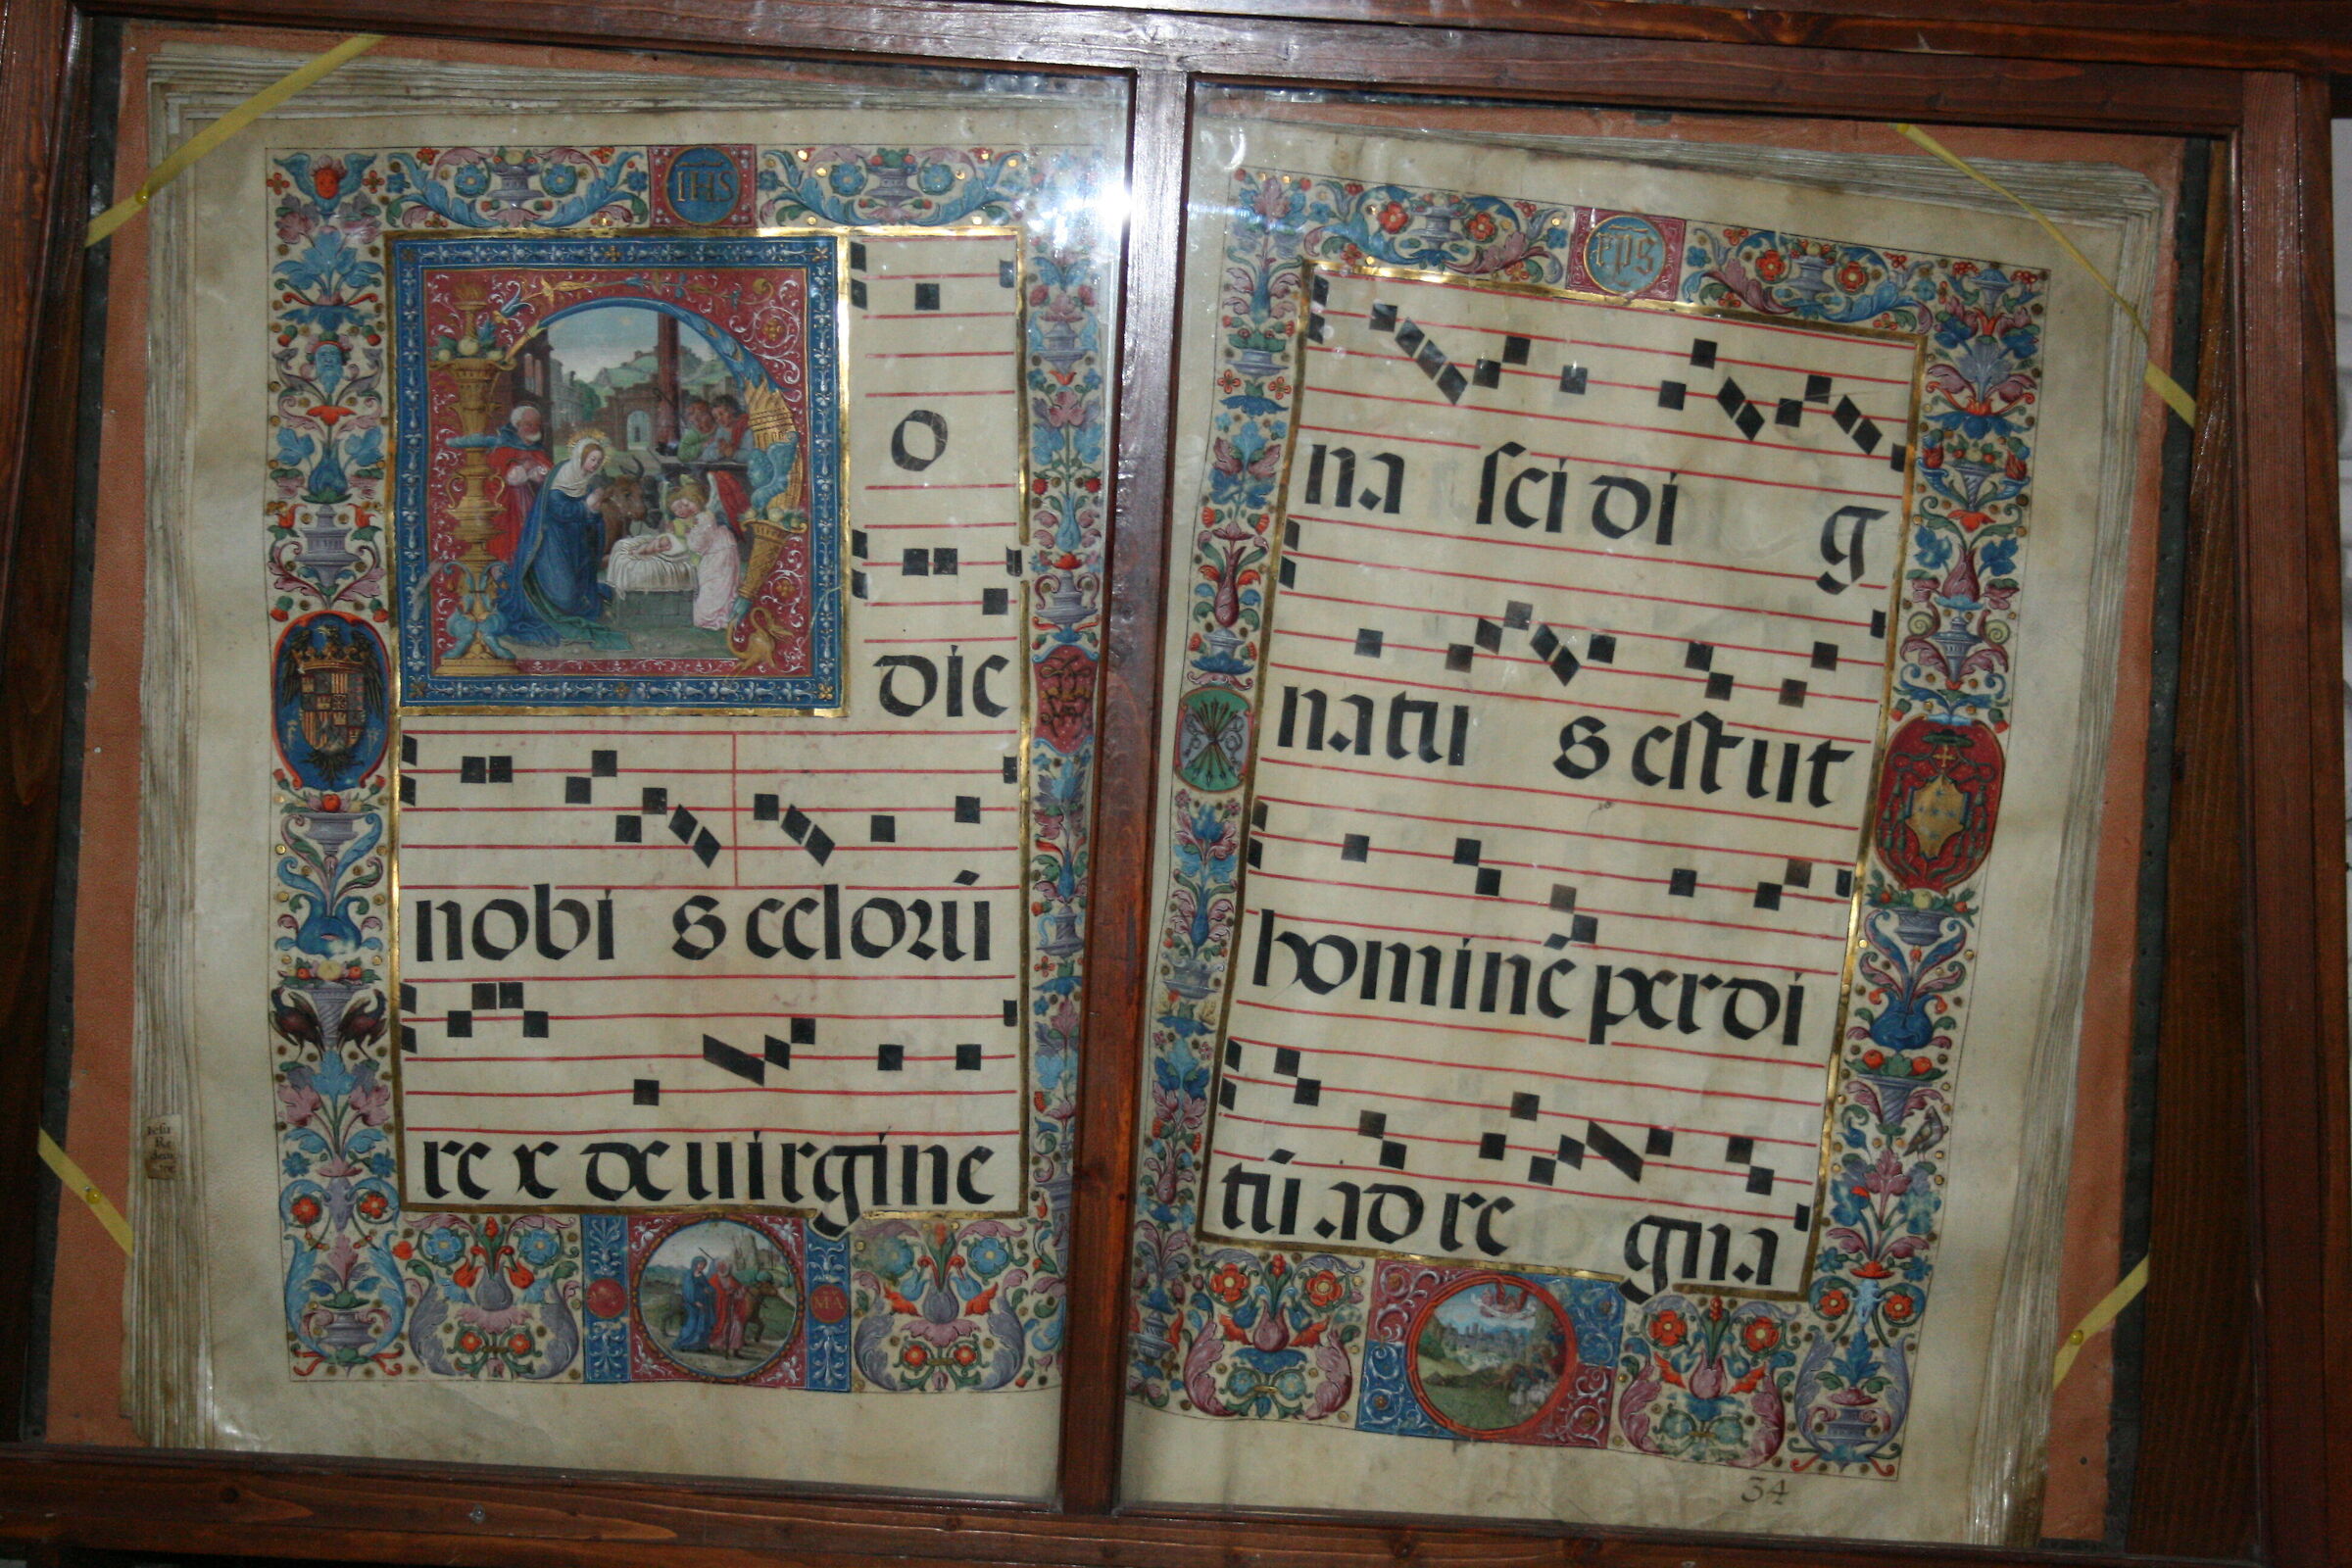 IHS
o
dic
nobi s celorū
re x de uirgine
MA
xps
na sci di g
natu s est ut
hominē perdi
tū ad re gna
34